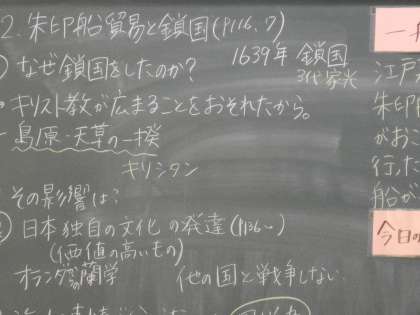 2.朱印船貿易と鎖国(P116,7)
1639年 鎖国
3代家光
なぜ鎖国をしたのか?
キリスト教が広まることをおそれたから。
島原・天草の一揆
キリシタン
その影響は?
日本独自の文化の発達(P136~)
(価値の高いもの)
オランダの蘭学 他の国と戦争しない
江戸
朱印
がおこ
行った
船が
今日の